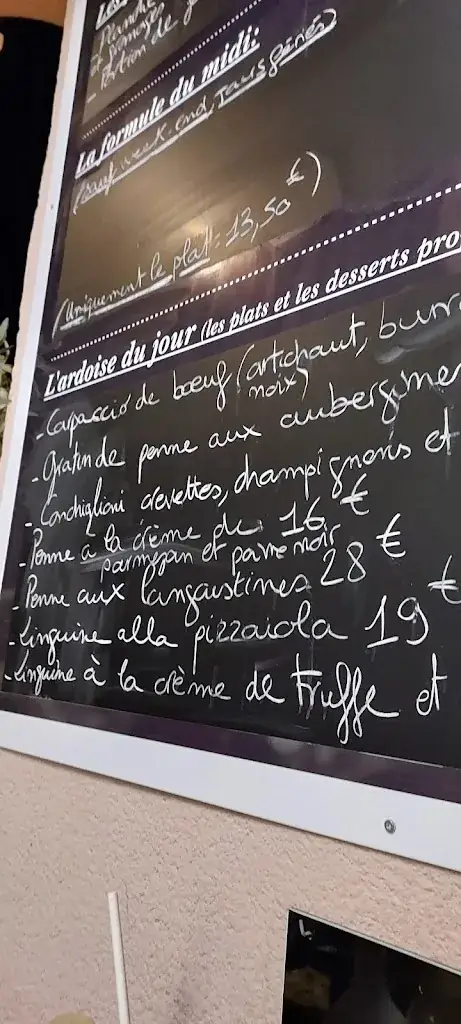 Planche
- Portion de
La formule du midi:
(sauf week-end, jours fériés)
(Uniquement le plat: 13,50 €)
L'ardoise du jour (les plats et les desserts pro
- Carpaccio de boeuf (artichaut, burra
noix)
- Gratin de penne aux aubergines
- Conchiglioni crevettes, champignons et
- Penne à la crème de 16 €
parmesan et poivre noir
- Penne aux langoustines 28 €
- Linguine alla pizzaiola 19 €
- Linguine à la crème de truffe et